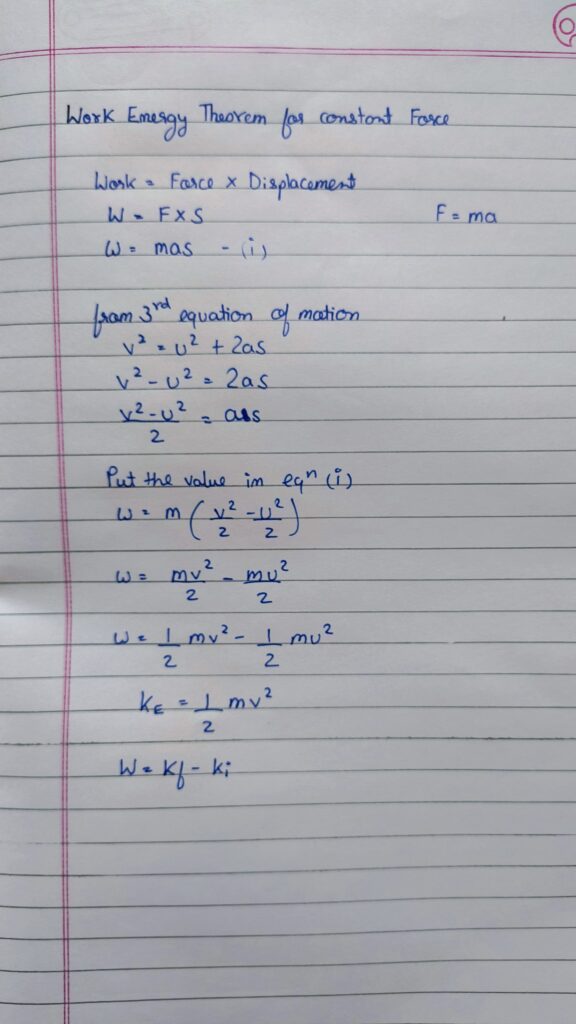 Work Energy Theorem for constant Force
Work = Force x Displacement
W = F x S F = ma
W = mas - (i)
from 3rd equation of motion
v² = u² + 2as
v² - u² = 2as
v² - u² / 2 = as
Put the value in eqn (i)
W = m ( v²/2 - u²/2 )
W = mv²/2 - mu²/2
W = 1/2 mv² - 1/2 mu²
KE = 1/2 mv²
W = Kf - Ki